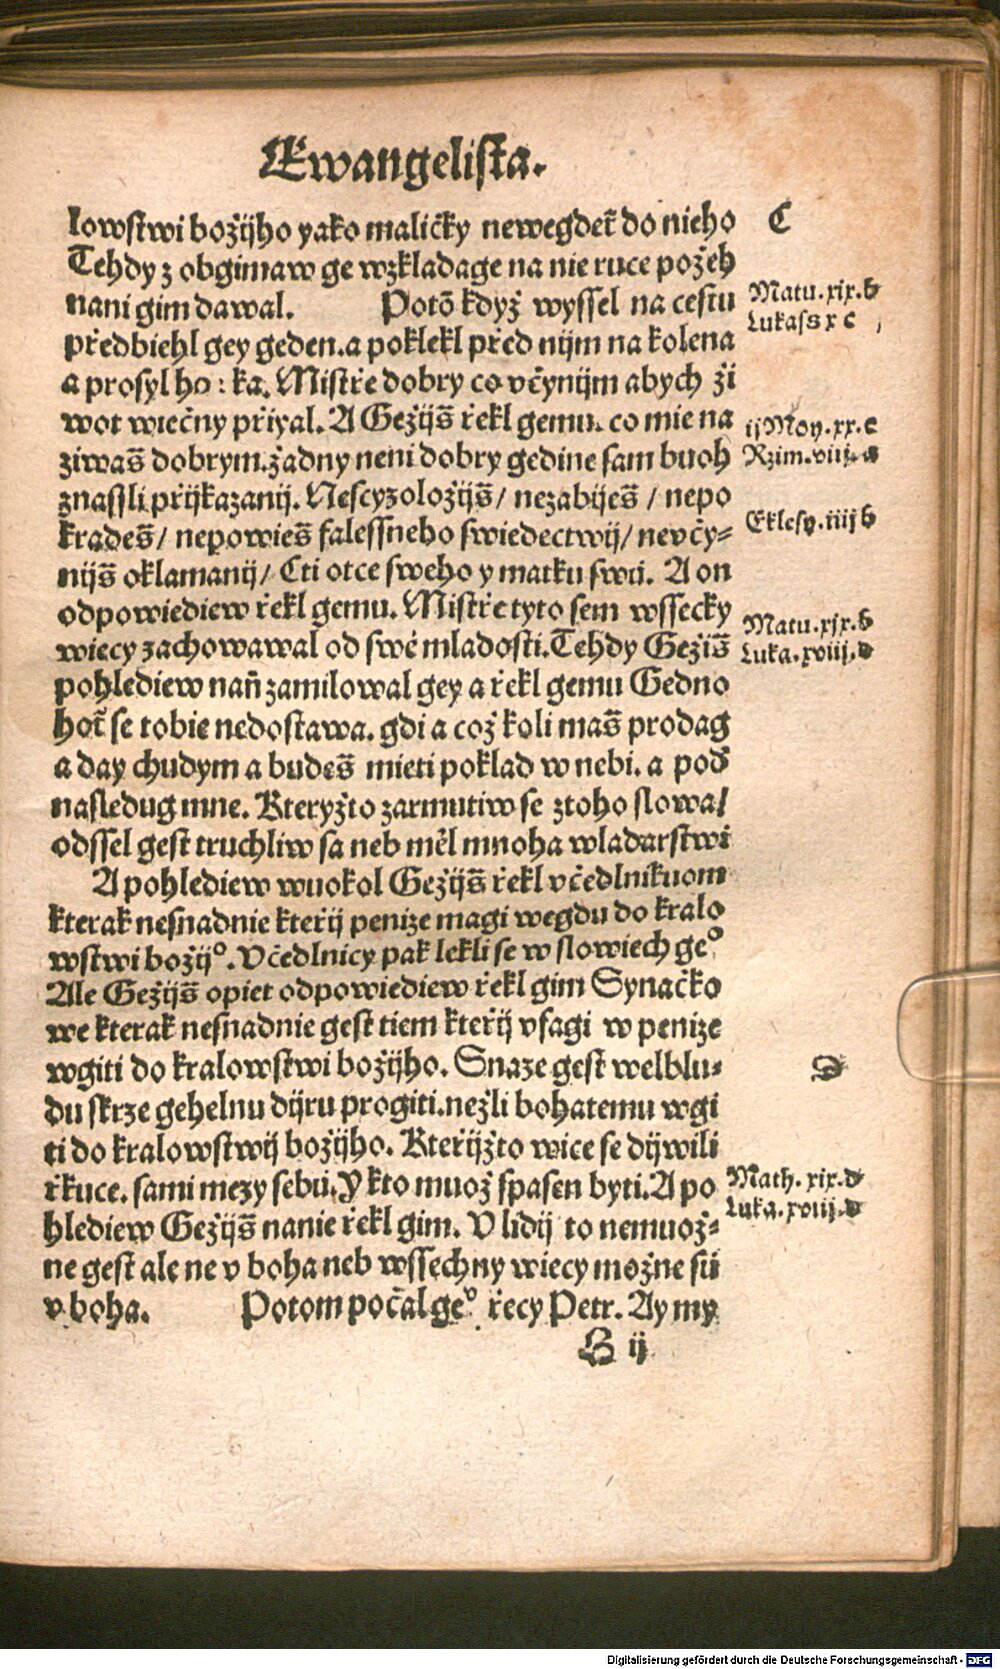 Ewangelista.
lowstwi božijho yako maličky newegdet̄ do nieho
C
Tehdy z obgimaw ge wzkladage na nie ruce požeh
nani gim dawal. Potō když wyssel na cestu
Matu.xix.b
Lukass x c
předbiehl gey geden.a poklekl před nijm na kolena
a prosyl ho: ka. Mistře dobry co včynijm abych ži
wot wiečny přiyal. A Gežijš řekl gemu. co mie na
ij Moy.xx.c
ziwaš dobrym.žadny neni dobry gedine sam buoh
Rzim.viij.a
znassli přijkazanij. Nescyzoložijš / nezabiješ / nepo
kradeš / nepowieš falessneho swiedectwij / nevčy=
Eklesy.iiij b
nijš oklamanij / Cti otce sweho y matku swů. A on
odpowiediew řekl gemu. Mistře tyto sem wssecky
Matu.xix.b
wiecy zachowawal od swē mladosti. Tehdy Gežiš
Luka.xviij.d
pohlediew naň zamilowal gey a řekl gemu Gedno
hot̄ se tobie nedostawa. gdi a což koli maš prodag
a day chudym a budeš mieti poklad w nebi. a poď
nasledug mne. Kteryžto zarmutiw se ztoho slowa/
odssel gest truchliw sa neb měl mnoha wladarstwi
A pohlediew wuokol Gežijš řekl včedlnikuom
kterak nesnadnie kteřij penize magi wegdu do kralo
wstwi božijº. Včedlnicy pak lekli se w slowiech geº
Ale Gežijš opiet odpowiediew řekl gim Synačko
we kterak nesnadnie gest tiem kteřij vfagi w penize
wgiti do kralowstwi božijho. Snaze gest welblu=
D
du skrze gehelnu dijru progiti.nežli bohatemu wgi
ti do kralowstwij božijho. Kteřijžto wice se dijwili
řkuce. sami mezy sebů. Y kto muož spasen byti. A po
Math. xix.d
Luka.xviij.d
hlediew Gežijš nanie řekl gim. V lidij to nemuož=
ne gest ale ne v boha neb wssechny wiecy možne sů
v boha. Potom počal geº řecy Petr. Ay my
B ij
Digitalisierung gefördert durch die Deutsche Forschungsgemeinschaft - DFG